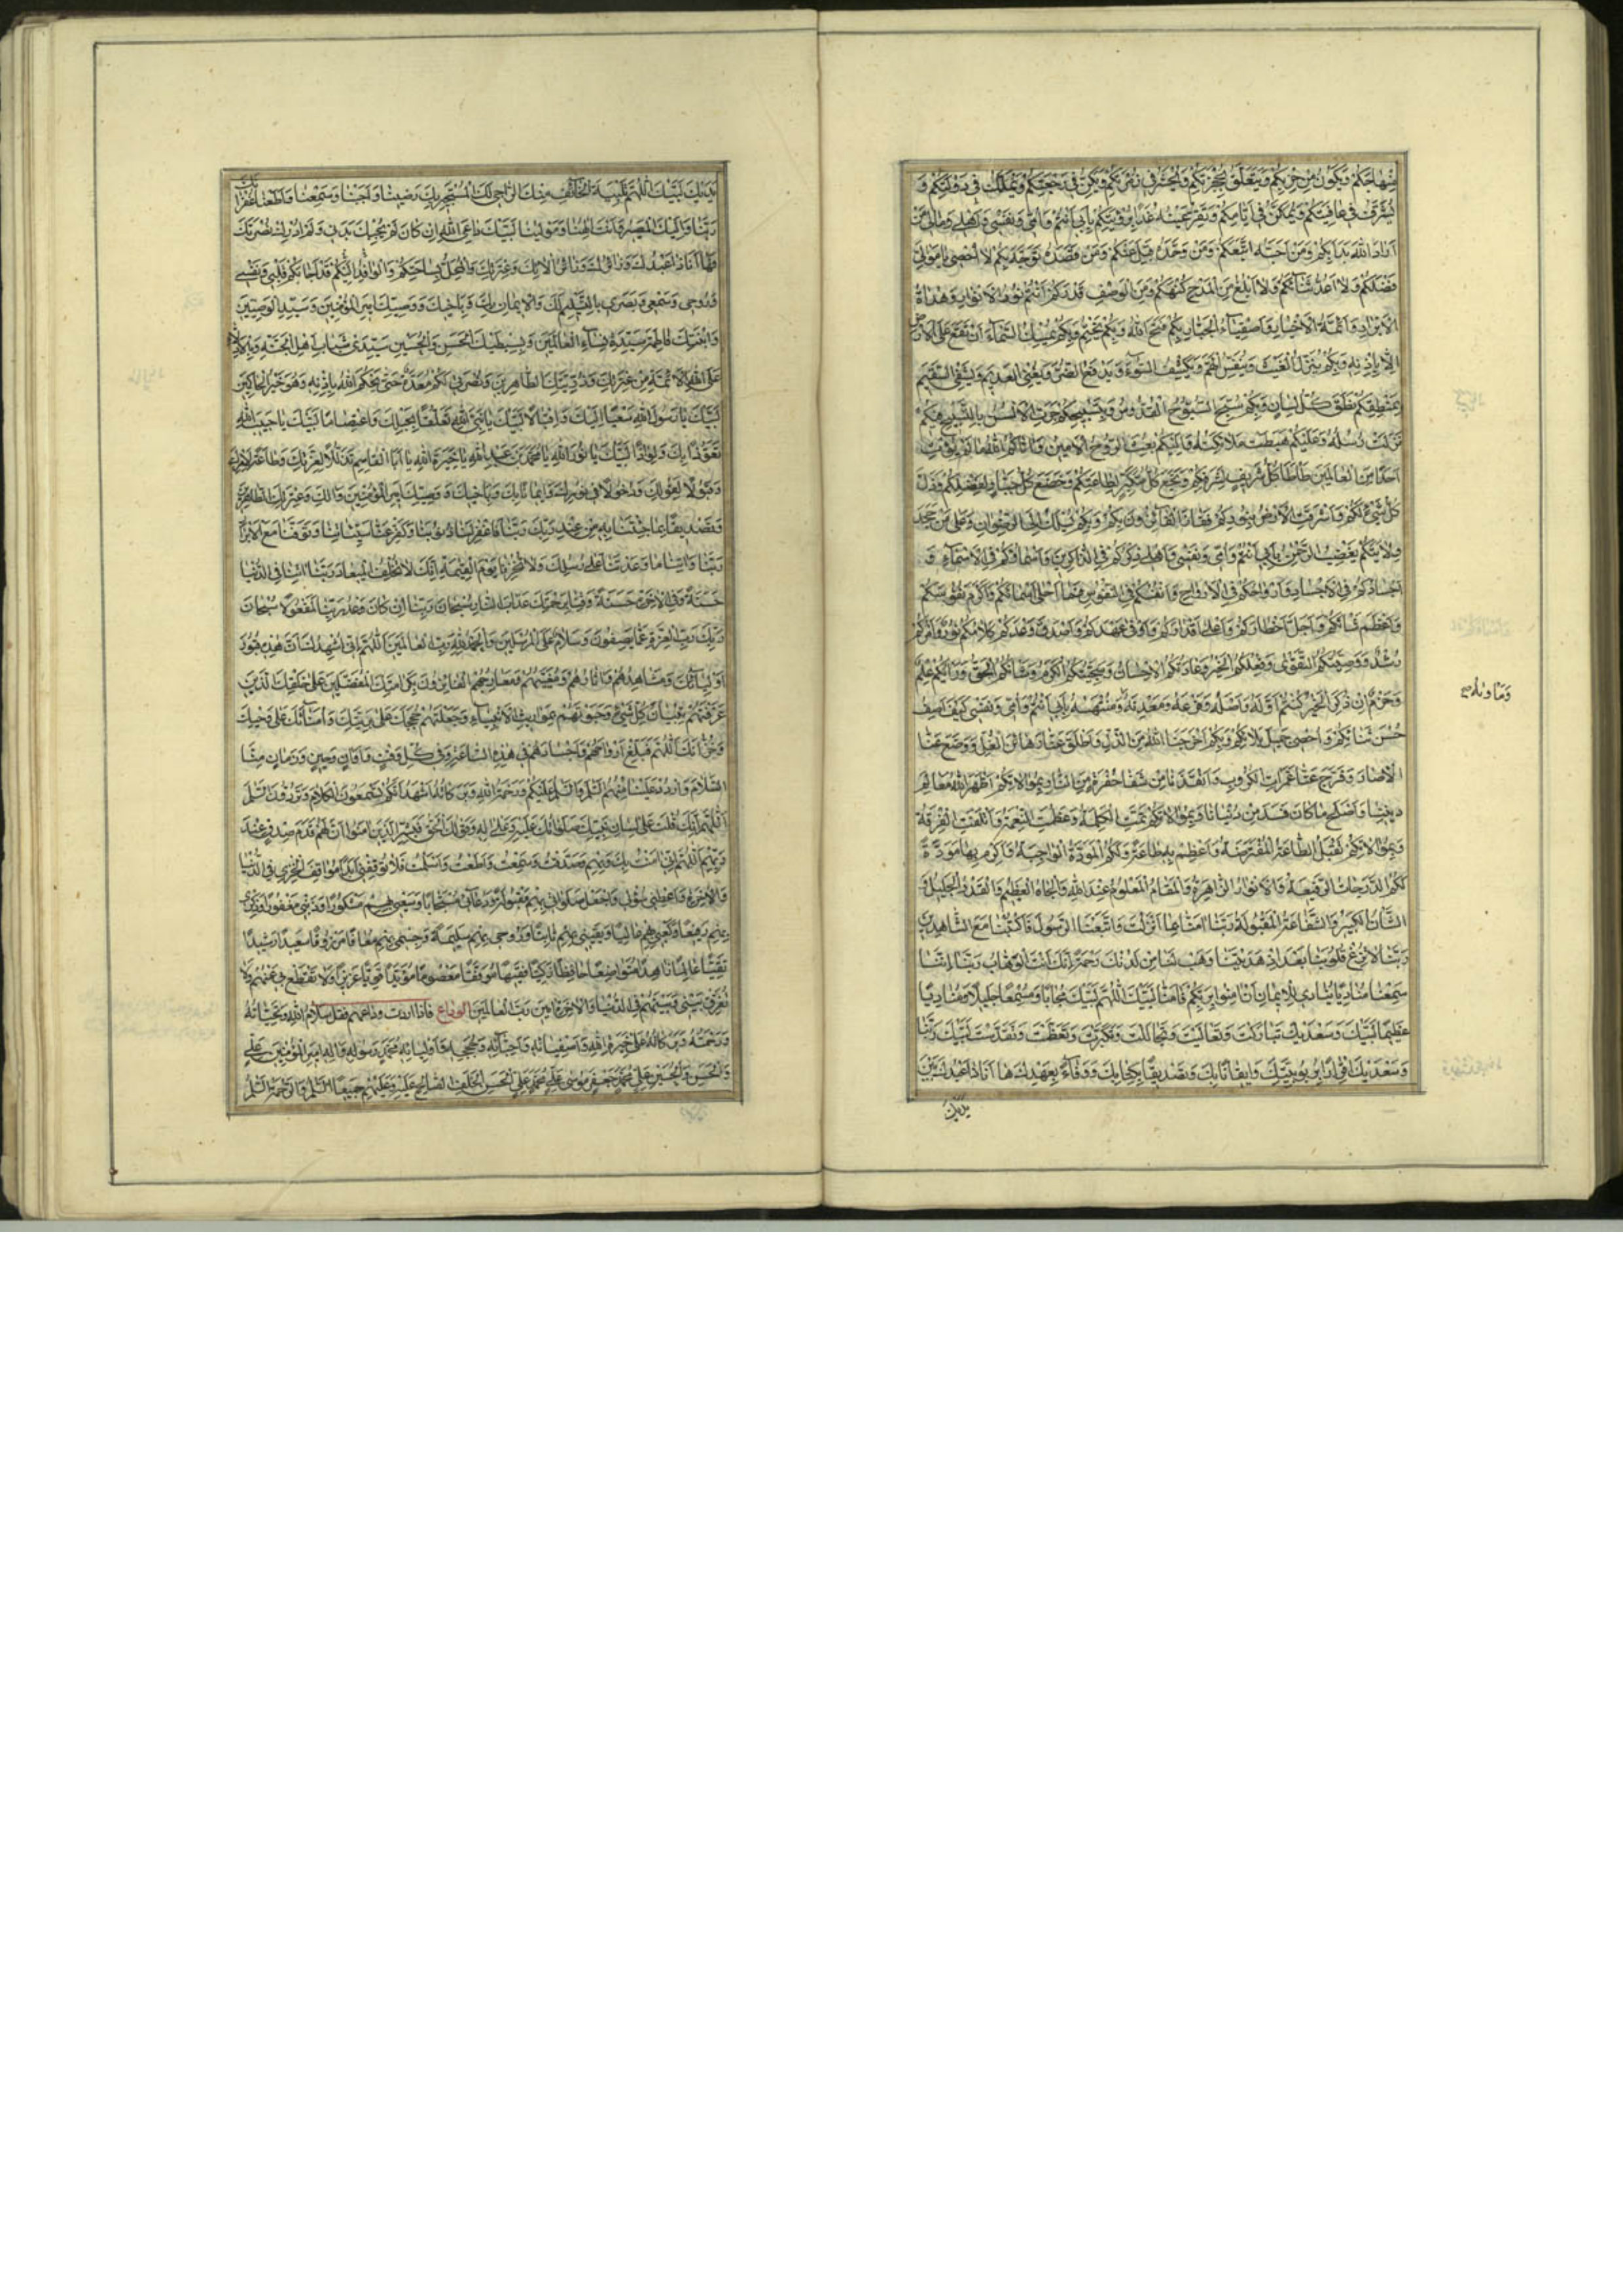 مِنْهاجَكُمْ وَيَكُونُ مِنْ حِزْبِكُمْ وَيَتَعَلَّقُ بِحُجْزَتِكُمْ وَيُحْشَرُ فِي زُمْرَتِكُمْ وَيَكِرُّ فِي رَجْعَتِكُمْ وَيُمَلَّكُ فِي دَوْلَتِكُمْ وَ
يُشَرَّفُ فِي عافِيَتِكُمْ وَيُمَكَّنُ فِي اَيّامِكُمْ وَتَقِرُّ عَيْنُهُ غَدًا بِرُؤْيَتِكُمْ بِاَبي اَنْتُمْ وَاُمّي وَنَفْسي وَاَهْلي وَمالي مَنْ
اَرادَ اللهَ بَدَأَ بِكُمْ وَمَنْ اَحَبَّهُ اتَّبَعَكُمْ وَمَنْ وَحَّدَهُ قَبِلَ عَنْكُمْ وَمَنْ قَصَدَهُ تَوَجَّهَ بِكُمْ لا اُحْصي يا مَوالِيَّ
فَضْلَكُمْ وَلا اَعُدُّ ثَنآءَكُمْ وَلا اَبْلُغُ مِنَ الْمَدْحِ كُنْهَكُمْ وَمِنَ الْوَصْفِ قَدْرَكُمْ اَنْتُمْ نُورُ الْاَنْوارِ وَهُداةُ
الْاَبْرارِ وَاَئِمَّةُ الْاَخْيارِ وَاَصْفِياءُ الْجَبّارِ بِكُمْ فَتَحَ اللهُ وَبِكُمْ يَخْتِمُ وَبِكُمْ يُمْسِكُ السَّماءَ اَنْ تَقَعَ عَلَى الْاَرْضِ
اِلّا بِاِذْنِهِ وَبِكُمْ يُنَزِّلُ الْغَيْثَ وَيُنَفِّسُ الْهَمَّ وَيَكْشِفُ السُّوءَ وَيَدْفَعُ الضُّرَّ وَيُغْنِي الْعَديمَ وَيَشْفِي السَّقيمَ
بِمَنْطِقِكُمْ نَطَقَ كُلُّ لِسانٍ وَبِكُمْ سُبِّحَ السُّبُّوحُ الْقُدُّوسُ وَبِتَسْبيحِكُمْ جَرَتِ الْاَلْسُنُ بِالتَّسْبيحِ فيكُمْ
نَزَلَتْ رُسُلُهُ وَعَلَيْكُمْ هَبَطَتْ مَلائِكَتُهُ وَاِلَيْكُمْ بُعِثَ الرُّوحُ الْاَمينُ وَآتاكُمُ اللهُ ما لَمْ يُؤْتِ
اَحَدًا مِنَ الْعالَمينَ طَأْطَأَ كُلُّ شَريفٍ لِشَرَفِكُمْ وَنَجَعَ كُلُّ مُتَكَبِّرٍ لِطاعَتِكُمْ وَخَضَعَ كُلُّ جَبّارٍ لِفَضْلِكُمْ وَذَلَّ
كُلُّ شَيْءٍ لَكُمْ وَاَشْرَقَتِ الْاَرْضُ بِنُورِكُمْ فَفازَ الْفائِزُونَ بِكُمْ وَبِكُمْ يُسْلَكُ اِلَى الرِّضْوانِ وَعَلى مَنْ جَحَدَ
وِلايَتَكُمْ يَغْضَبُ الرَّحْمنُ بِاَبي اَنْتُمْ وَاُمّي وَنَفْسي وَاَهْلي ذِكْرُكُمْ فِي الذّاكِرينَ وَاَسْماؤُكُمْ فِي الْاَسْماءِ وَ
اَجْسادُكُمْ فِي الْاَجْسادِ وَاَرْواحُكُمْ فِي الْاَرْواحِ وَاَنْفُسُكُمْ فِي النُّفُوسِ فَما اَحْلى اَسْماءَكُمْ وَاَكْرَمَ نُفُوسَكُمْ
وَاَعْظَمَ شَأْنَكُمْ وَاَجَلَّ اَخْطارَكُمْ وَاَعْلى اَقْدارَكُمْ وَاَوْفى عَهْدَكُمْ وَاَصْدَقَ وَعْدَكُمْ كَلامُكُمْ نُورٌ وَاَمْرُكُمْ
رُشْدٌ وَوَصِيَّتُكُمُ التَّقْوى وَفِعْلُكُمُ الْخَيْرُ وَعادَتُكُمُ الْاِحْسانُ وَسَجِيَّتُكُمُ الْكَرَمُ وَشَأْنُكُمُ الْحَقُّ وَرَأْيُكُمْ عِلْمٌ
وَحَزْمٌ اِنْ ذُكِرَ الْخَيْرُ كُنْتُمْ اَوَّلَهُ وَاَصْلَهُ وَفَرْعَهُ وَمَعْدِنَهُ وَمُنْتَهاهُ بِاَبي اَنْتُمْ وَاُمّي وَنَفْسي كَيْفَ اَصِفُ
وَمَأْواهُ
حُسْنَ ثَنائِكُمْ وَاُحْصي جَميلَ بَلائِكُمْ وَبِكُمْ اَخْرَجَنَا اللهُ مِنَ الذُّلِّ وَاَطْلَقَ عَنّا رَهائِنَ الْغُلِّ وَوَضَعَ عَنّا
الْآصارَ وَفَرَّجَ عَنّا غَمَراتِ الْكُرُوبِ وَاَنْقَذَنا مِنْ شَفا حُفْرَةٍ مِنَ النّارِ بِمُوالاتِكُمْ اَظْهَرَ اللهُ مَعالِمَ
دينِنا وَاَصْلَحَ ما كانَ فَسَدَ مِنْ دُنْيانا وَبِمُوالاتِكُمْ تَمَّتِ الْكَلِمَةُ وَعَظُمَتِ النِّعْمَةُ وَائْتَلَفَتِ الْفُرْقَةُ
وَبِمُوالاتِكُمْ تُقْبَلُ الطّاعَةُ الْمُفْتَرَضَةُ وَاَعْظِمْ بِها طاعَةً وَلَكُمُ الْمَوَدَّةُ الْواجِبَةُ وَاَكْرِمْ بِها مَوَدَّةً
لَكُمُ الدَّرَجاتُ الرَّفيعَةُ وَالْاَنْوارُ الزّاهِرَةُ وَالْمَقامُ الْمَعْلُومُ عِنْدَ اللهِ وَالْجاهُ الْعَظيمُ وَالْقَدْرُ الْجَليلُ وَ
الشَّأْنُ الْكَبيرُ وَالشَّفاعَةُ الْمَقْبُولَةُ رَبَّنا آمَنّا بِما اَنْزَلْتَ وَاتَّبَعْنَا الرَّسُولَ فَاكْتُبْنا مَعَ الشّاهِدينَ
رَبَّنا لا تُزِغْ قُلُوبَنا بَعْدَ اِذْ هَدَيْتَنا وَهَبْ لَنا مِنْ لَدُنْكَ رَحْمَةً اِنَّكَ اَنْتَ الْوَهّابُ رَبَّنا اِنَّنا
سَمِعْنا مُنادِيًا يُنادي لِلْايمانِ اَنْ آمِنُوا بِرَبِّكُمْ فَآمَنّا لَبَّيْكَ اللّهُمَّ لَبَّيْكَ مُجابًا وَمُسْمِعًا جَليلًا وَمُنادِيًا
عَظيمًا لَبَّيْكَ وَسَعْدَيْكَ تَبارَكْتَ وَتَعالَيْتَ وَتَجالَلْتَ وَتَكَبَّرْتَ وَتَعَظَّمْتَ وَتَقَدَّسْتَ لَبَّيْكَ رَبَّنا
وَسَعْدَيْكَ اِقْرارًا بِرُبُوبِيَّتِكَ وَايقانًا بِكَ وَتَصْديقًا بِكِتابِكَ وَوَفاءً بِعَهْدِكَ ها اَنَا ذا عَبْدُكَ بَيْنَ
يَدَيْكَ
يَدَيْكَ لَبَّيْكَ اللّهُمَّ تَلْبِيَةَ الْخائِفِ مِنْكَ الرّاجي لَكَ الْمُسْتَجيرِ بِكَ رَضينا وَاَجَبْنا وَسَمِعْنا وَاَطَعْنا غُفْرانَكَ
رَبَّنا وَاِلَيْكَ الْمَصيرُ وَاَنْتَ اِلهُنا وَمَوْلينا لَبَّيْكَ داعِيَ اللهِ اِنْ كانَ لَمْ يُجِبْكَ بَدَني وَلَمْ اُدْرِكْ نُصْرَتَكَ
فَها اَنَا ذا عَبْدُكَ وَزائِرُكَ وَعِتْرَتِكَ وَالْمُحِلُّ بِساحَتِكُمْ وَالْوافِدُ اِلَيْكُمْ قَدْ اَجابَكُمْ قَلْبي وَنَفْسي
وَرُوحي وَسَمْعي وَبَصَري بِالتَّسْليمِ لَكَ وَالْايمانِ بِكَ وَبِاَخيكَ وَوَصِيِّكَ اَميرِ الْمُؤْمِنينَ وَسَيِّدِ الْوَصِيّينَ
وَابْنَتِكَ فاطِمَةَ سَيِّدَةِ نِساءِ الْعالَمينَ وَبِسِبْطَيْكَ الْحَسَنِ وَالْحُسَيْنِ سَيِّدَيْ شَبابِ اَهْلِ الْجَنَّةِ
الْاَئِمَّةِ مِنْ عِتْرَتِكَ وَذُرِّيَّتِكَ الطّاهِرينَ وَنُصْرَتي لَكُمْ مُعَدَّةٌ حَتّى يَحْكُمَ اللهُ بِاِذْنِهِ وَهُوَ خَيْرُ الْحاكِمينَ
لَبَّيْكَ يا رَسُولَ اللهِ سَعْيًا اِلَيْكَ وَاِقْبالًا لَبَّيْكَ يا نَبِيَّ اللهِ تَعَلُّقًا بِحَبْلِكَ وَاعْتِصامًا لَبَّيْكَ يا حَبيبَ اللهِ
تَعَوُّذًا بِكَ وَلِواذًا لَبَّيْكَ يا نُورَ اللهِ يا مُحَمَّدَ بْنَ عَبْدِ اللهِ يا خِيَرَةَ اللهِ يا اَبَا الْقاسِمِ تَذَلُّلًا لِعِزَّتِكَ وَطاعَةً لِاَمْرِكَ
وَقَبُولًا لِقَوْلِكَ وَدُخُولًا في نُورِكَ وَايمانًا بِكَ وَبِاَخيكَ وَوَصِيِّكَ اَميرِ الْمُؤْمِنينَ وَآلِكَ وَعِتْرَتِكَ الطّاهِرَةِ
وَتَصْديقًا بِما جِئْتَنا بِهِ مِنْ عِنْدِ رَبِّكَ رَبَّنا فَاغْفِرْ لَنا ذُنُوبَنا وَكَفِّرْ عَنّا سَيِّئاتِنا وَتَوَفَّنا مَعَ الْاَبْرارِ
رَبَّنا وَآتِنا ما وَعَدْتَنا عَلى رُسُلِكَ وَلا تُخْزِنا يَوْمَ الْقِيمَةِ اِنَّكَ لا تُخْلِفُ الْميعادَ رَبَّنا آتِنا فِي الدُّنْيا
حَسَنَةً وَفِي الْآخِرَةِ حَسَنَةً وَقِنا بِرَحْمَتِكَ عَذابَ النّارِ سُبْحانَ رَبِّنا اِنْ كانَ وَعْدُ رَبِّنا لَمَفْعُولًا سُبْحانَ
رَبِّكَ رَبِّ الْعِزَّةِ عَمّا يَصِفُونَ وَسَلامٌ عَلَى الْمُرْسَلينَ وَالْحَمْدُ لِلّهِ رَبِّ الْعالَمينَ اَللّهُمَّ اِنّي اُشْهِدُكَ اَنَّ هذِهِ قُبُورُ
اَوْلِيائِكَ وَمَشاهِدُهُمْ وَآثارُهُمْ وَمُغَيَّبُهُمْ وَمَعارِجُهُمُ الْفائِزُونَ بِكَرامَتِكَ الْمُفَضَّلينَ عَلى خَلْقِكَ الَّذينَ
عَرَّفْتَهُمْ تِبْيانَ كُلِّ شَيْءٍ وَحَبَوْتَهُمْ بِمَواريثِ الْاَنْبِياءِ وَجَعَلْتَهُمْ حُجَجَكَ عَلى بَرِيَّتِكَ وَاُمَناءَكَ عَلى وَحْيِكَ
وَخُزّانِكَ اَللّهُمَّ فَبَلِّغْ اَرْواحَهُمْ وَاَجْسادَهُمْ في هذِهِ السّاعَةِ وَفي كُلِّ وَقْتٍ وَاَوانٍ وَحينٍ وَزَمانٍ مِنَّا
السَّلامَ وَارْدُدْ عَلَيْنا مِنْهُمُ السَّلمَ وَالسَّلمُ عَلَيْكُمْ وَرَحْمَةُ اللهِ وَبَرَكاتُهُ اَشْهَدُ اَنَّكُمْ تَسْمَعُونَ الْكَلامَ وَتَرُدُّونَ السَّلمَ
اَللّهُمَّ اِنَّكَ قُلْتَ عَلى لِسانِ نَبِيِّكَ صَلَواتُكَ عَلَيْهِ وَعَلى آلِهِ وَقَوْلُكَ الْحَقُّ وَبَشِّرِ الَّذينَ آمَنُوا اَنَّ لَهُمْ قَدَمَ صِدْقٍ عِنْدَ
رَبِّهِمْ اَللّهُمَّ اِنّي آمَنْتُ بِكَ وَبِهِمْ وَصَدَّقْتُ وَسَمِعْتُ وَاَطَعْتُ وَاَسْلَمْتُ فَلا تُوقِفْني اَبَدًا مَواقِفَ الْخِزْيِ فِي الدُّنْيا
وَالْآخِرَةِ وَاَعْطِني سُؤْلي وَاجْعَلْ صَلَواتي بِهِمْ مَقْبُولَةً وَدُعائي بِهِمْ مُسْتَجابًا وَسَعْيي بِهِمْ مَشْكُورًا وَذَنْبي مَغْفُورًا
بِهِمْ رَفيعًا وَكَعْبي بِهِمْ عالِيًا وَيَقيني بِهِمْ ثابِتًا وَرُوحي بِهِمْ سَليمَةً وَجِسْمي بِهِمْ مُعافًا مَرْزُوقًا سَعيدًا رَشيدًا
تَقِيًّا عالِمًا زاهِدًا مُتَواضِعًا حافِظًا زَكِيًّا فَقيهًا مُوَفَّقًا مَعْصُومًا مُؤَيَّدًا قَوِيًّا عَزيزًا وَلا تَقْطَعْ بي عَنْهُمْ وَلا
تُفَرِّقْ بَيْني وَبَيْنَهُمْ فِي الدُّنْيا وَالْآخِرَةِ آمينَ رَبَّ الْعالَمينَ الوداع فَاِذا اَرَدْتَ وَداعَهُمْ فَقُلْ سَلامُ اللهِ وَتَحِيّاتُهُ
وَرَحْمَتُهُ وَبَرَكاتُهُ عَلى خِيَرَةِ اللهِ وَاَصْفِيائِهِ وَاَحِبّائِهِ وَحُجَجِهِ وَاَوْلِيائِهِ مُحَمَّدٍ رَسُولِهِ وَآلِهِ اَميرِ الْمُؤْمِنينَ عَلِيٍّ
وَالْحَسَنِ وَالْحُسَيْنِ وَعَلِيٍّ وَمُحَمَّدٍ وَجَعْفَرٍ وَمُوسى وَعَلِيٍّ وَمُحَمَّدٍ وَعَلِيٍّ وَالْحَسَنِ وَالْخَلَفِ الصّالِحِ عَلَيْهِ وَعَلَيْهِمْ جَميعًا السَّلمُ وَالرَّحْمَةُ السَّلمُ